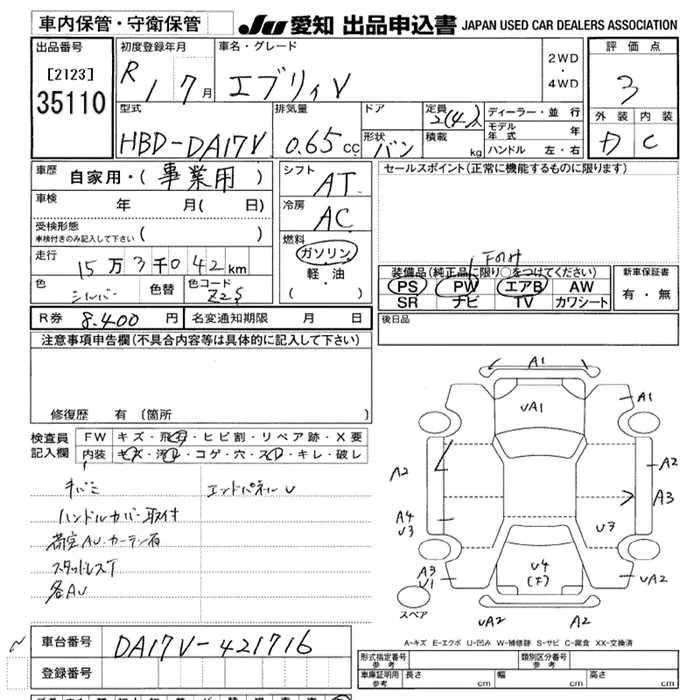 車内保管・守衛保管
JU 愛知 出品申込書 JAPAN USED CAR DEALERS ASSOCIATION
出品番号
[2123]
35110
初度登録年月
R 1 7月
車名・グレード
エブリィV
2WD
・
4WD
評価点
3
外装 内装
D C
型式
HBD-DA17V
排気量
0.65cc
ドア
形状
バン
定員
2(4)人
積載
kg
ディーラー・並行
モデル年式 年
ハンドル 左・右
車歴
自家用・(事業用)
車検
年 月( 日)
受検形態
車検付きのみ記入して下さい ( )
走行
15万3千042km
色
シルバー
色替
色コード
Z2S
シフト
AT
冷房
AC
燃料
ガソリン
・
軽・油
( )
セールスポイント(正常に機能するものに限ります)
Fのみ
装備品(純正品に限り○をつけてください)
PS PW エアB AW
SR ナビ TV カワシート
新車保証書
有・無
R券 8.400円
名変通知期限 月 日
後日品
注意事項申告欄(不具合内容等は具体的に記入して下さい)
修復歴 有(箇所
検査員記入欄
FW キズ・飛石・ヒビ割・リペア跡・X要
内装 キズ・汚レ・コゲ・穴・スレ・キレ・破レ
キバミ
エンドパネルU
ハンドルカバー取付
荷室AU・カーテン有
スタッドレスT
各AU
A1
UA1
A1
A2
A2
A3
A4
U3
U3
A3
U1
U4
(F)
UA2
UA2
A2
スペア
A-キズ E-エクボ U-凹み W-補修跡 S-サビ C-腐食 XX-交換済
車台番号
DA17V-421716
登録番号
形式指定番号 参考
類別区分番号 参考
車庫証明用 参考
長さ cm 幅 cm 高さ cm